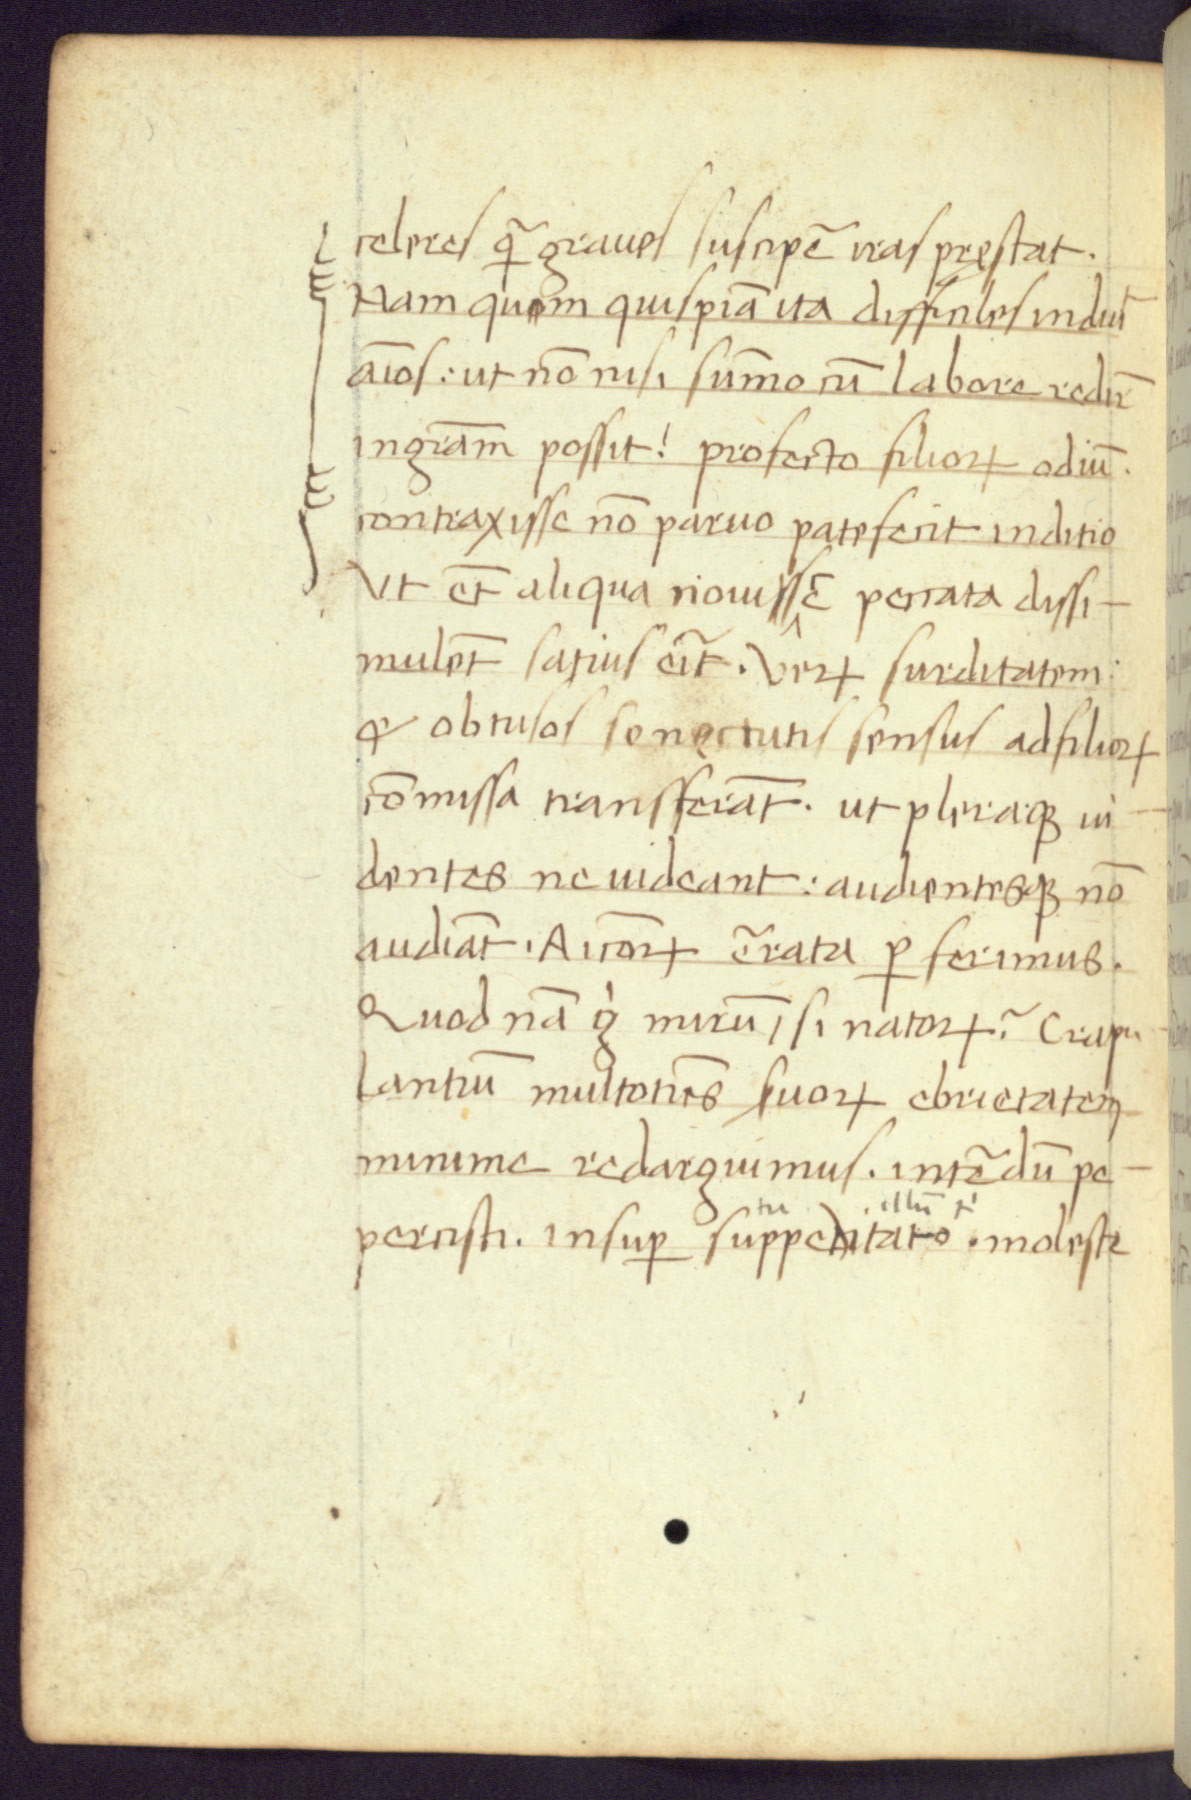 celeres q̃ graues suscipẽ iras pręstat.
Nam quom quispiã ita difficiles induit̃
aĩos: ut nõ nisi sum̃o cũ labore redir̃
in gr̃am possit! profecto filioꝝ odiũ.
contraxisse nõ paruo patefecit inditio
Vt et̃ aliqua nouisse peccata dissi-
mulẽt satius eĩt. Verꝝ surditatem:
& obtusos senectutis sensus ad filioꝝ
cõmissa transferãt. ut pleraqꝫ ui-
dentes ne uideant: audientesqꝫ nõ
audiãt. Amicoꝝ errata ꝑferimus.
Quod nã g̊ mirũ, si natoꝝ? Crapu-
lantiũ multotiẽs suoꝝ ebrietatem
minime redarguimus. intẽdũ pe-
percisti. insuꝑ suppeditato. moleste
tu illũ